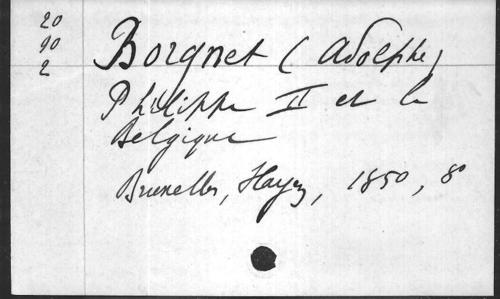 20
90
2
Borgnet (Adolphe)
Philippe II et la
Belgique
Bruxelles, Hayez, 1850, 8°